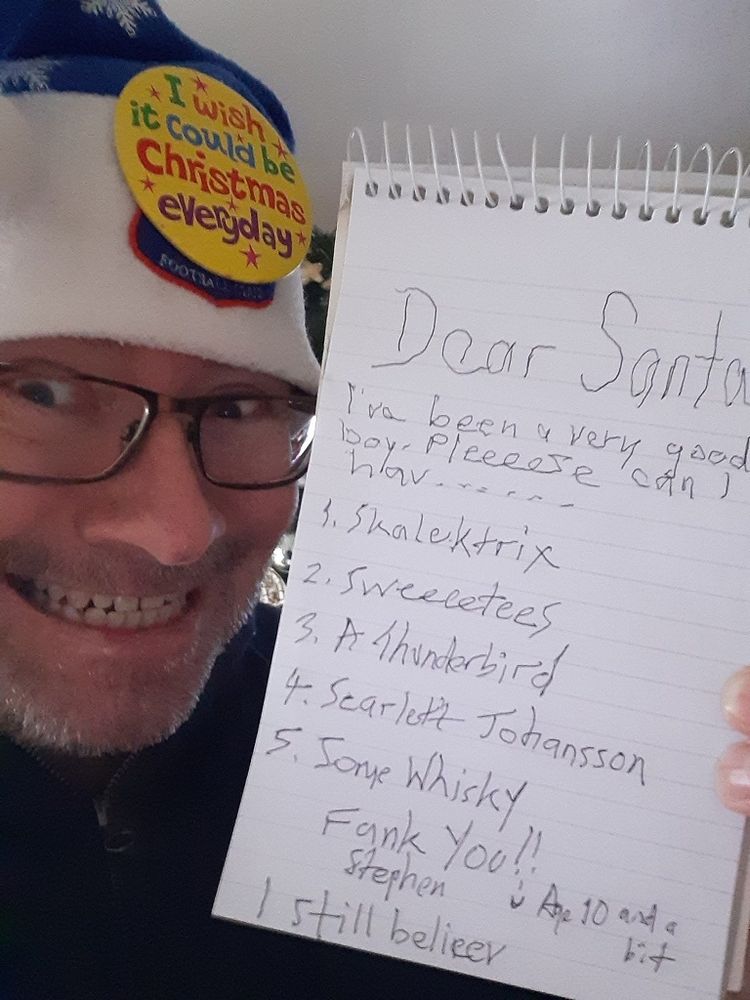 I wish
it could be
Christmas
everyday
Dear Santa
I've been a very good
boy. Pleeeese can I
hav.......
1. Skalektrix
2. Sweeeetees
3. A Thunderbird
4. Scarlett Johansson
5. Some Whisky
Fank You!!
Stephen
Age 10 and a
bit
I still belieev